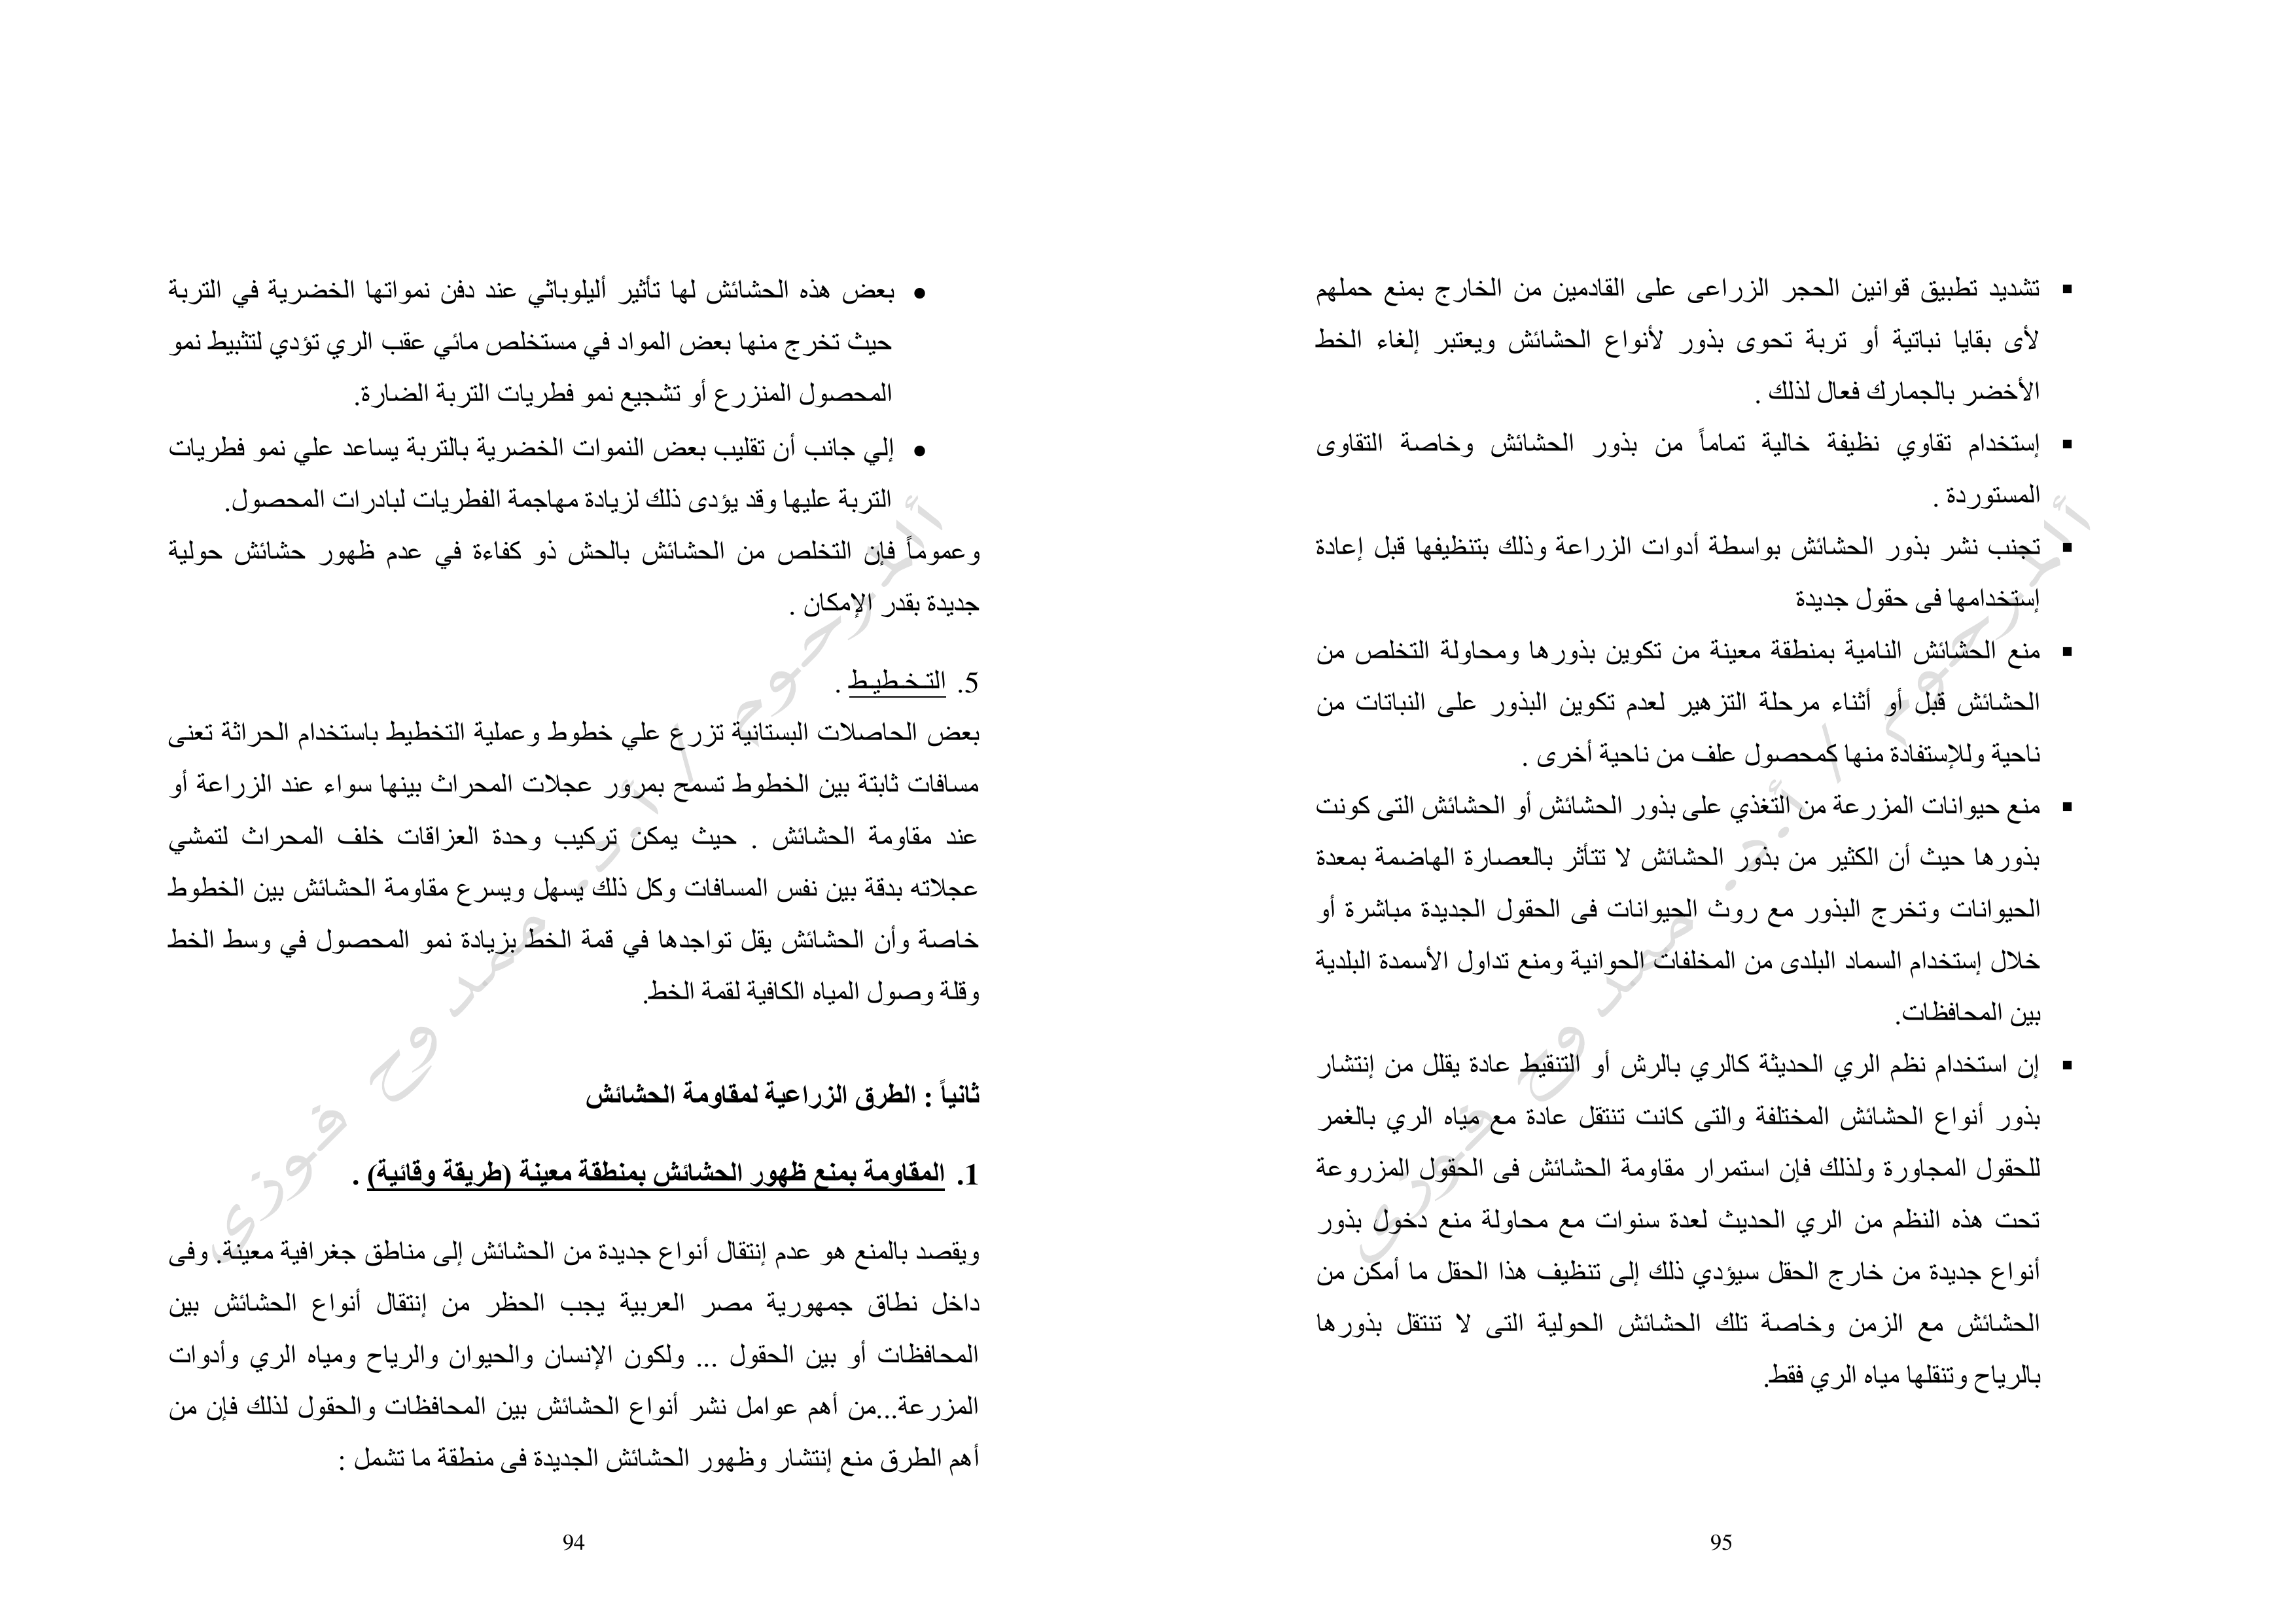 بعض هذه الحشائش لها تأثير أليلوباثي عند دفن نمواتها الخضرية في التربة
حيث تخرج منها بعض المواد في مستخلص مائي عقب الري تؤدي لتثبيط نمو
المحصول المنزرع أو تشجيع نمو فطريات التربة الضارة.
إلي جانب أن تقليب بعض النموات الخضرية بالتربة يساعد علي نمو فطريات
التربة عليها وقد يؤدى ذلك لزيادة مهاجمة الفطريات لبادرات المحصول.
وعموماً فإن التخلص من الحشائش بالحش ذو كفاءة في عدم ظهور حشائش حولية
جديدة بقدر الإمكان .
5. التـخـطيـط .
بعض الحاصلات البستانية تزرع علي خطوط وعملية التخطيط باستخدام الحراثة تعنى
مسافات ثابتة بين الخطوط تسمح بمرور عجلات المحراث بينها سواء عند الزراعة أو
عند مقاومة الحشائش . حيث يمكن تركيب وحدة العزاقات خلف المحراث لتمشي
عجلاته بدقة بين نفس المسافات وكل ذلك يسهل ويسرع مقاومة الحشائش بين الخطوط
خاصة وأن الحشائش يقل تواجدها في قمة الخط بزيادة نمو المحصول في وسط الخط
وقلة وصول المياه الكافية لقمة الخط.
ثانياً : الطرق الزراعية لمقاومة الحشائش
1. المقاومة بمنع ظهور الحشائش بمنطقة معينة (طريقة وقائية) .
ويقصد بالمنع هو عدم إنتقال أنواع جديدة من الحشائش إلى مناطق جغرافية معينة. وفى
داخل نطاق جمهورية مصر العربية يجب الحظر من إنتقال أنواع الحشائش بين
المحافظات أو بين الحقول ... ولكون الإنسان والحيوان والرياح ومياه الري وأدوات
المزرعة...من أهم عوامل نشر أنواع الحشائش بين المحافظات والحقول لذلك فإن من
أهم الطرق منع إنتشار وظهور الحشائش الجديدة فى منطقة ما تشمل :
94
ألمـرحـوم / أ.د. ممـدوح فـوزى
تشديد تطبيق قوانين الحجر الزراعى على القادمين من الخارج بمنع حملهم
لأى بقايا نباتية أو تربة تحوى بذور لأنواع الحشائش ويعتبر إلغاء الخط
الأخضر بالجمارك فعال لذلك .
إستخدام تقاوي نظيفة خالية تماماً من بذور الحشائش وخاصة التقاوى
المستوردة .
تجنب نشر بذور الحشائش بواسطة أدوات الزراعة وذلك بتنظيفها قبل إعادة
إستخدامها فى حقول جديدة
منع الحشائش النامية بمنطقة معينة من تكوين بذورها ومحاولة التخلص من
الحشائش قبل أو أثناء مرحلة التزهير لعدم تكوين البذور على النباتات من
ناحية وللإستفادة منها كمحصول علف من ناحية أخرى .
منع حيوانات المزرعة من التغذي على بذور الحشائش أو الحشائش التى كونت
بذورها حيث أن الكثير من بذور الحشائش لا تتأثر بالعصارة الهاضمة بمعدة
الحيوانات وتخرج البذور مع روث الحيوانات فى الحقول الجديدة مباشرة أو
خلال إستخدام السماد البلدى من المخلفات الحوانية ومنع تداول الأسمدة البلدية
بين المحافظات.
إن استخدام نظم الري الحديثة كالري بالرش أو التنقيط عادة يقلل من إنتشار
بذور أنواع الحشائش المختلفة والتى كانت تنتقل عادة مع مياه الري بالغمر
للحقول المجاورة ولذلك فإن استمرار مقاومة الحشائش فى الحقول المزروعة
تحت هذه النظم من الري الحديث لعدة سنوات مع محاولة منع دخول بذور
أنواع جديدة من خارج الحقل سيؤدي ذلك إلى تنظيف هذا الحقل ما أمكن من
الحشائش مع الزمن وخاصة تلك الحشائش الحولية التى لا تنتقل بذورها
بالرياح وتنقلها مياه الري فقط.
95
ألمـرحـوم / أ.د. ممـدوح فـوزى